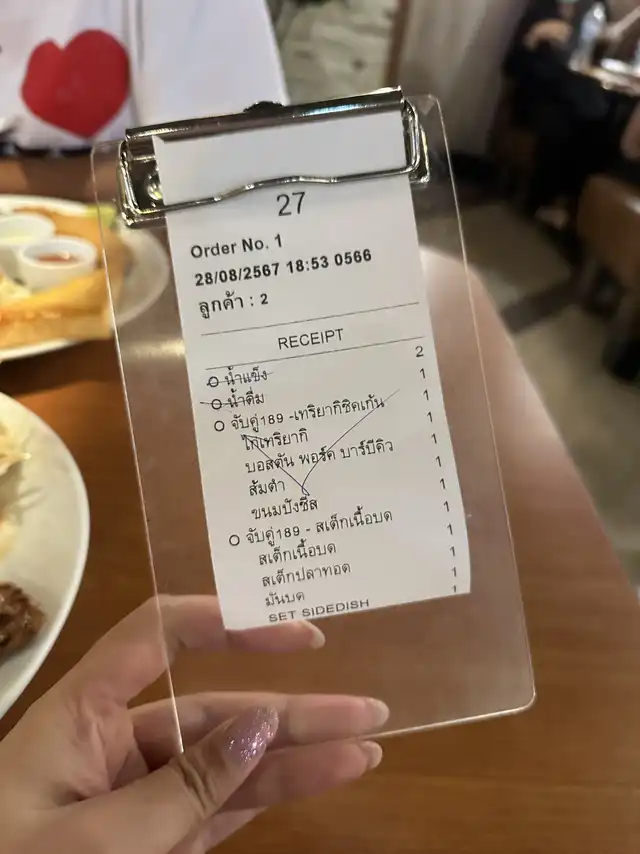 27
Order No. 1
28/08/2567 18:53 0566
ลูกค้า : 2
RECEIPT
O น้ำแข็ง 2
O น้ำดื่ม 1
O จับคู่189 -เทริยากิชิคเก้น 1
ไก่เทริยากิ 1
บอสตัน พอร์ค บาร์บีคิว 1
ส้มตำ 1
ขนมปังชีส 1
O จับคู่189 - สเต็กเนื้อบด 1
สเต็กเนื้อบด 1
สเต็กปลาทอด 1
มันบด 1
SET SIDEDISH 1